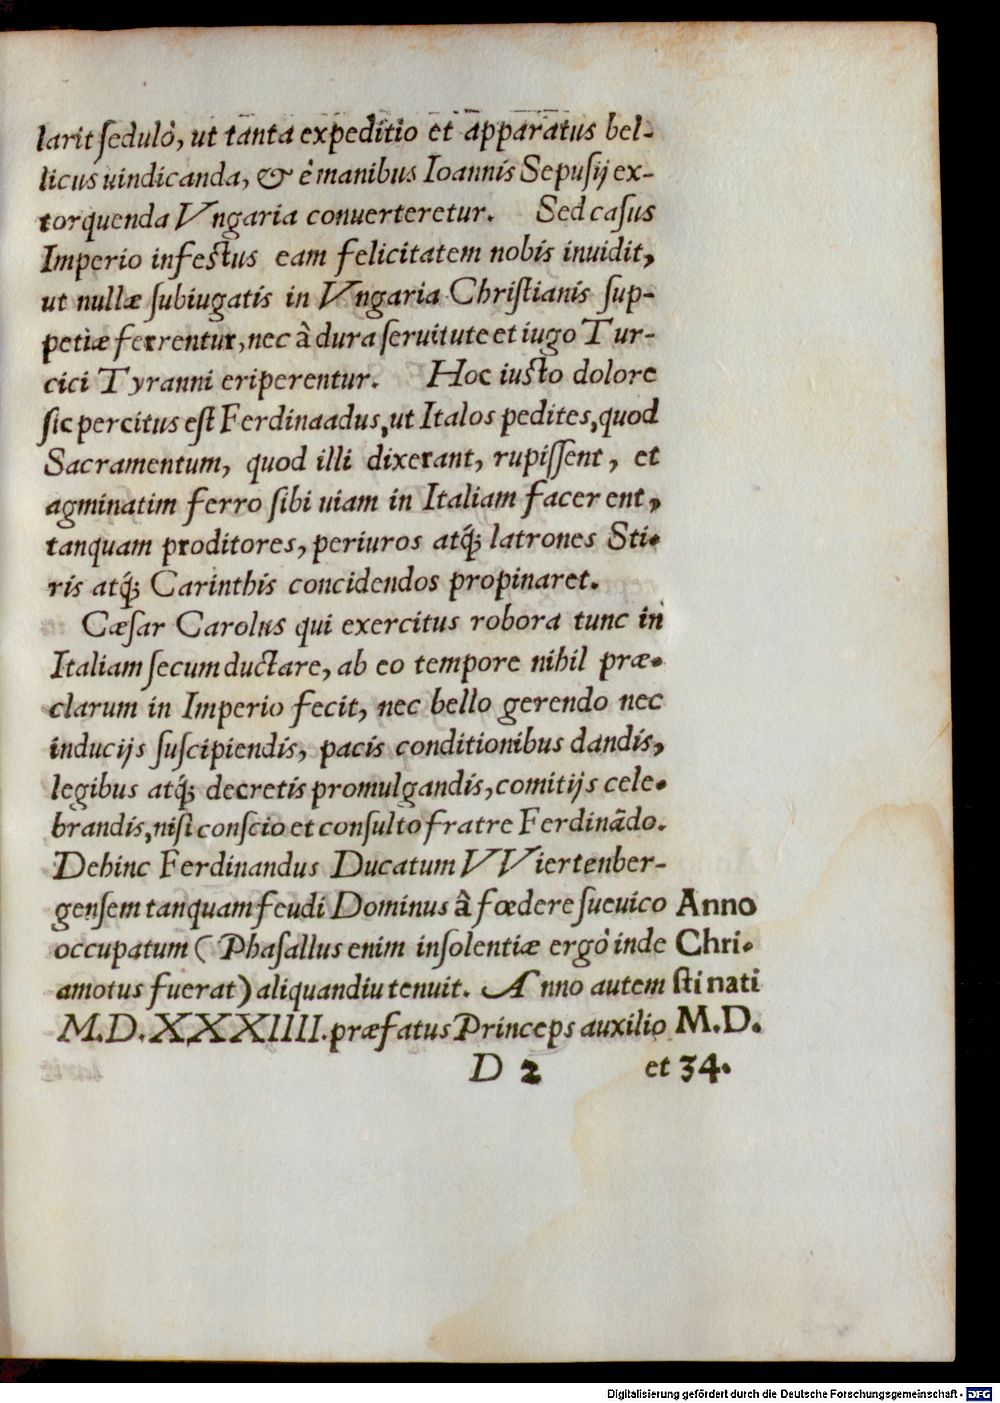 larit ſedulò, ut tanta expeditio et apparatus bel-
licus uindicanda, & è manibus Ioannis Sepuſij ex-
torquenda Vngaria conuerteretur. Sed caſus
Imperio infeſtus eam felicitatem nobis inuidit,
ut nullæ ſubiugatis in Vngaria Chriſtianis ſup-
petiæ ferrentur, nec à dura ſeruitute et iugo Tur-
cici Tyranni eriperentur. Hoc iuſto dolore
ſic percitus eſt Ferdinaadus, ut Italos pedites, quod
Sacramentum, quod illi dixerant, rupiſſent, et
agminatim ferro ſibi uiam in Italiam facerent,
tanquam proditores, periuros atq́; latrones Sti-
ris atq́; Carinthis concidendos propinaret.
Cæſar Carolus qui exercitus robora tunc in
Italiam ſecum ductare, ab eo tempore nihil præ-
clarum in Imperio fecit, nec bello gerendo nec
inducijs ſuſcipiendis, pacis conditionibus dandis,
legibus atq́; decretis promulgandis, comitijs cele-
brandis, niſi conſcio et conſulto fratre Ferdinãdo.
Dehinc Ferdinandus Ducatum VViertenber-
genſem tanquam feudi Dominus à fœdere ſueuico
occupatum (Phaſallus enim inſolentiæ ergò inde
amotus fuerat) aliquandiu tenuit. Anno autem
M.D.XXXIIII. præfatus Princeps auxilio
D 2 et
Anno
Chri-
ſti nati
M.D.
34.
Digitalisierung gefördert durch die Deutsche Forschungsgemeinschaft - DFG